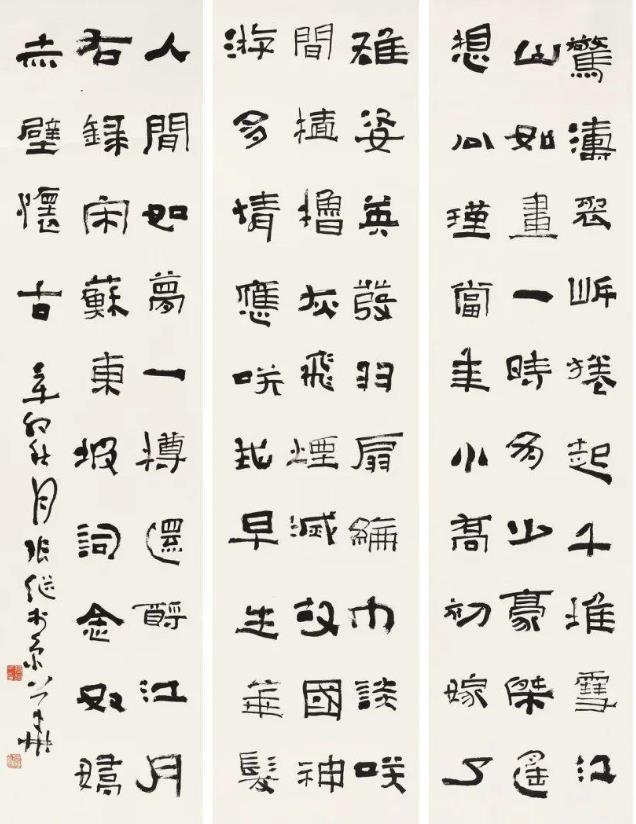 驚濤裂岸捲起千堆雪江
山如畫一時多少豪傑遙
想公瑾當年小喬初嫁了
雄姿英發羽扇綸巾談咲
間檣櫓灰飛煙滅故國神
游多情應咲我早生華髮
人間如夢一樽還酹江月
右録宋蘇東坡詞念奴嬌
赤壁懷古 辛卯秋月張继於京